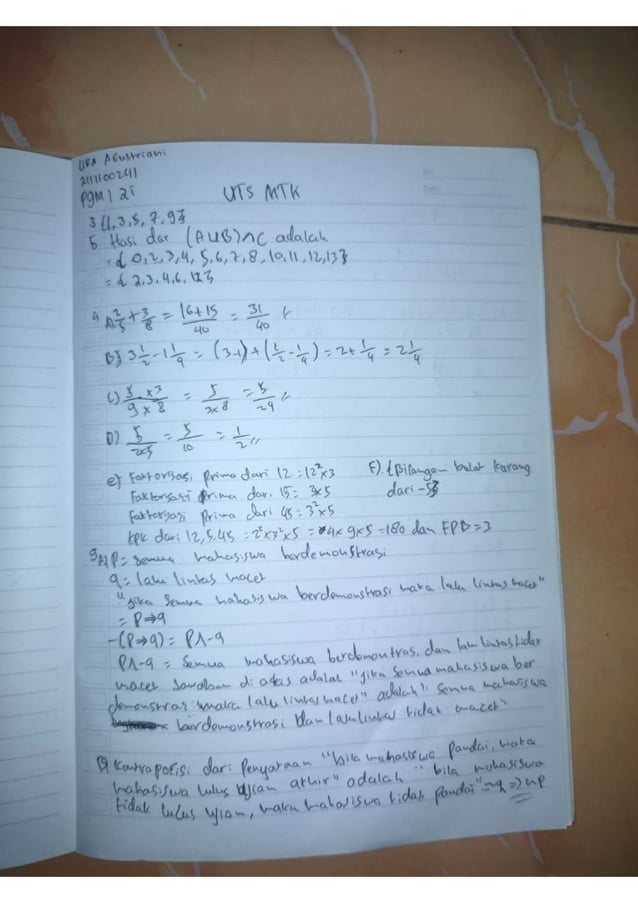 Lira Agustriani
2111100241
PGMI 2I
UTS MTK
3 {1,3,5,7,9}
5 Hasi dar (AUB)∩C adalah
= { 0,2,3,4,5,6,7,8,10,11,12,13}
= { 2,3,4,6,12}
4 A) 2/5 + 3/8 = 16+15/40 = 31/40
B) 3 1/2 - 1 1/4 = (3-1)+(1/2-1/4) = 2+1/4 = 2 1/4
C) 5 x 3/9 x 8 = 5/3x8 = 5/24
D) 5/2x5 = 5/10 = 1/2
e) Faktorisasi prima dari 12 = 12²x3
F). {Bilangan bulat kurang
Faktorisasi prima dari 15 = 3x5
dari -5}
Faktorisasi prima dari 45 = 3²x5
KPK dari 12,5,45 = 2²x3²x5 = 4x9x5 = 180 dan FPB = 3
9 A) P = semua mahasiswa berdemonstrasi
q = lalu lintas macet
"jika semua mahasiswa berdemonstrasi maka lalu lintas macet"
= P⇒q
-(P⇒q) = P∧-q
P∧-q = semua mahasiswa berdemontras. dan lalu lintas tidak
macet Jawaban di atas adalah "jika semua mahasiswa ber
demonstrasi maka lalu lintas macet" adalah semua mahasiswa
berdemonstrasi dan lalu lintas tidak macet"
B) Kontraposisi dari penyataan "bila mahasiswa pandai, maka
mahasiswa lulus ujian akhir" adalah "bila mahasiswa
tidak lulus ujian, maka mahasiswa tidak pandai" ~q ⇒ ~p